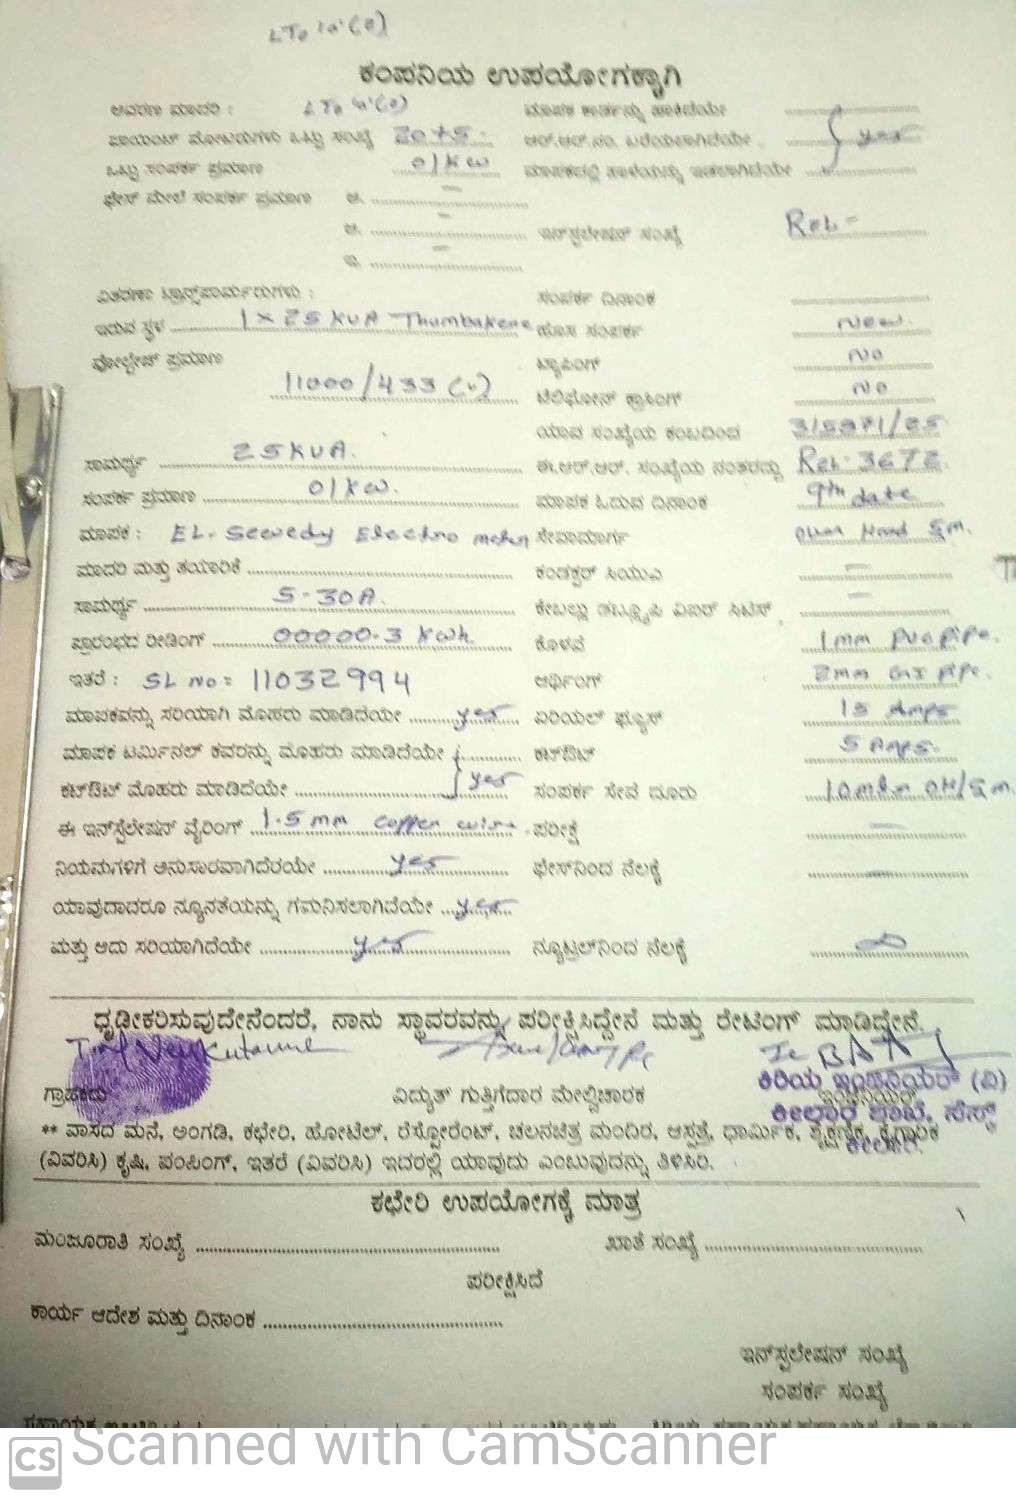 ಕಂಪನಿಯ ಉಪಯೋಗಕ್ಕಾಗಿ
ಆವರಣ ಮಾದರಿ : ಮಾಪಕ ಕಾರ್ಡನ್ನು ಹಾಕಿದೆಯೇ
ಪಾಯಿಂಟ್ ಮೋಟರುಗಳು ಒಟ್ಟು ಸಂಖ್ಯೆ 20+5 ಆರ್.ಆರ್.ನಂ. ಬರೆಯಲಾಗಿದೆಯೇ yes
ಒಟ್ಟು ಸಂಪರ್ಕ ಪ್ರಮಾಣ 01kw ಮಾಪಕದಲ್ಲಿ ಹಾಳೆಯನ್ನು ಇಡಲಾಗಿದೆಯೇ
ಫೇಸ್ ಮೇಲೆ ಸಂಪರ್ಕ ಪ್ರಮಾಣ ಅ.
ಆ. ಇನ್‌ಸ್ಟಲೇಷನ್ ಸಂಖ್ಯೆ
ಇ.
ವಿತರಣಾ ಟ್ರಾನ್ಸ್‌ಫಾರ್ಮರುಗಳು : ಸಂಪರ್ಕ ದಿನಾಂಕ
ಇರುವ ಸ್ಥಳ 1 x 25 KVA Thumbakere ಹೊಸ ಸಂಪರ್ಕ New
ವೋಲ್ಟೇಜ್ ಪ್ರಮಾಣ 11000/433 (v) ಟ್ಯಾಪಿಂಗ್ No
ಟೆಲಿಫೋನ್ ಕ್ರಾಸಿಂಗ್ No
ಯಾವ ಸಂಖ್ಯೆಯ ಕಂಬದಿಂದ
ಸಾಮರ್ಥ್ಯ 25KVA. ಈ.ಆರ್.ಆರ್. ಸಂಖ್ಯೆಯ ನಂತರದ್ದು 3672
ಸಂಪರ್ಕ ಪ್ರಮಾಣ 01kw. ಮಾಪಕ ಓದುವ ದಿನಾಂಕ 9th date
ಮಾಪಕ : EL. Electro ಸೇವಾಮಾರ್ಗ
ಮಾದರಿ ಮತ್ತು ತಯಾರಿಕೆ ಕಂಡಕ್ಟರ್ ಸಿಯುಎ
ಸಾಮರ್ಥ್ಯ 5-30A. ಕೇಬಲ್ಲು
ಪ್ರಾರಂಭದ ರೀಡಿಂಗ್ 00000.3 kwh. ಕೊಳವೆ 1mm pvc pipe.
ಇತರೆ : SL No = 11032994 ಅರ್ಥಿಂಗ್ 2mm GI pipe.
ಮಾಪಕವನ್ನು ಸರಿಯಾಗಿ ಮೊಹರು ಮಾಡಿದೆಯೇ yes ಏರಿಯಲ್ ಫ್ಯೂಸ್ 15 Amps
ಮಾಪಕ ಟರ್ಮಿನಲ್ ಕವರನ್ನು ಮೊಹರು ಮಾಡಿದೆಯೇ ಕಟ್‌ಔಟ್ 5 Amps.
ಕಟ್‌ಔಟ್ ಮೊಹರು ಮಾಡಿದೆಯೇ yes ಸಂಪರ್ಕ ಸೇವೆ ದೂರು
ಈ ಇನ್‌ಸ್ಟಲೇಷನ್ ವೈರಿಂಗ್ 1.5 mm copper wire ಪರೀಕ್ಷೆ
ನಿಯಮಗಳಿಗೆ ಅನುಸಾರವಾಗಿದೆಯೇ yes ಫೇಸ್‌ನಿಂದ ನೆಲಕ್ಕೆ
ಯಾವುದಾದರೂ ನ್ಯೂನತೆಯನ್ನು ಗಮನಿಸಲಾಗಿದೆಯೇ yes
ಮತ್ತು ಅದು ಸರಿಯಾಗಿದೆಯೇ yes ನ್ಯೂಟ್ರಲ್‌ನಿಂದ ನೆಲಕ್ಕೆ
ಧೃಡೀಕರಿಸುವುದೇನೆಂದರೆ, ನಾನು ಸ್ಥಾವರವನ್ನು ಪರೀಕ್ಷಿಸಿದ್ದೇನೆ ಮತ್ತು ರೇಟಿಂಗ್ ಮಾಡಿದ್ದೇನೆ.
ಕಿರಿಯ ಇಂಜಿನಿಯರ್ (ವಿ)
ಗ್ರಾಹಕರು ವಿದ್ಯುತ್ ಗುತ್ತಿಗೆದಾರ ಮೇಲ್ವಿಚಾರಕ ಇಂಜಿನಿಯರ್
ಕೀಲಾರ ಶಾಖೆ, ಸೆಸ್ಕ್
ಕೀಲಾರ.
** ವಾಸದ ಮನೆ, ಅಂಗಡಿ, ಕಛೇರಿ, ಹೋಟೆಲ್, ರೆಸ್ಟೋರೆಂಟ್, ಚಲನಚಿತ್ರ ಮಂದಿರ, ಆಸ್ಪತ್ರೆ, ಧಾರ್ಮಿಕ, ಶೈಕ್ಷಣಿಕ, ಕೈಗಾರಿಕೆ
(ವಿವರಿಸಿ) ಕೃಷಿ, ಪಂಪಿಂಗ್, ಇತರೆ (ವಿವರಿಸಿ) ಇದರಲ್ಲಿ ಯಾವುದು ಎಂಬುವುದನ್ನು ತಿಳಿಸಿರಿ.
ಕಛೇರಿ ಉಪಯೋಗಕ್ಕೆ ಮಾತ್ರ
ಮಂಜೂರಾತಿ ಸಂಖ್ಯೆ ಖಾತೆ ಸಂಖ್ಯೆ
ಪರೀಕ್ಷಿಸಿದೆ
ಕಾರ್ಯ ಆದೇಶ ಮತ್ತು ದಿನಾಂಕ
ಇನ್‌ಸ್ಟಲೇಷನ್ ಸಂಖ್ಯೆ
ಸಂಪರ್ಕ ಸಂಖ್ಯೆ
CS Scanned with CamScanner